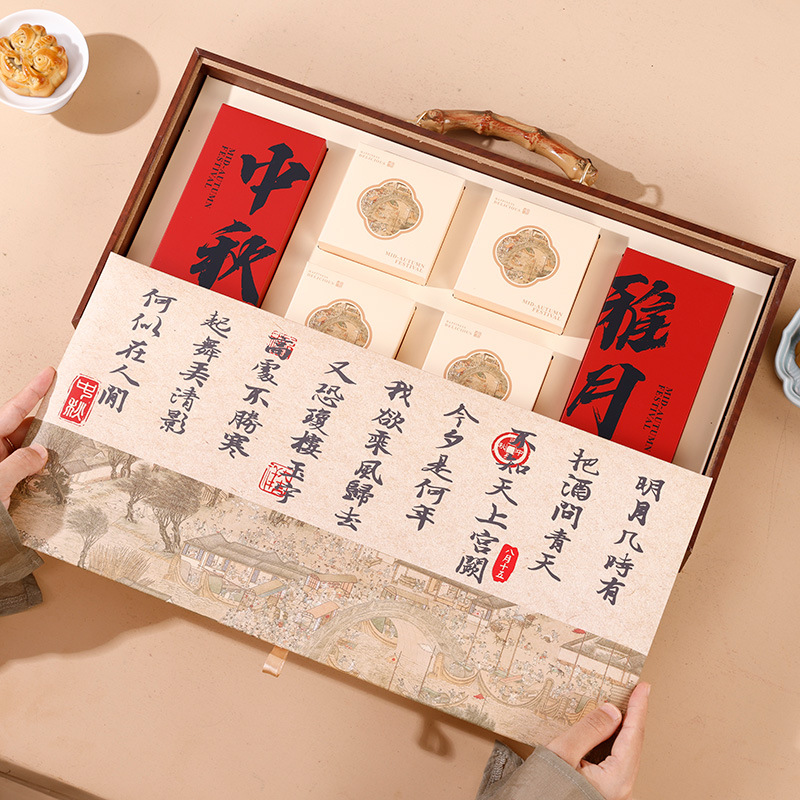 中秋
MID-AUTUMN
FESTIVAL
MID-AUTUMN
FESTIVAL
MID-AUTUMN
FESTIVAL
雅月
MID-AUTUMN
FESTIVAL
明月几時有
把酒問青天
不知天上宫闕
今夕是何年
我欲乘風歸去
又恐瓊樓玉宇
高處不勝寒
起舞弄清影
何似在人間
八月十五
中秋